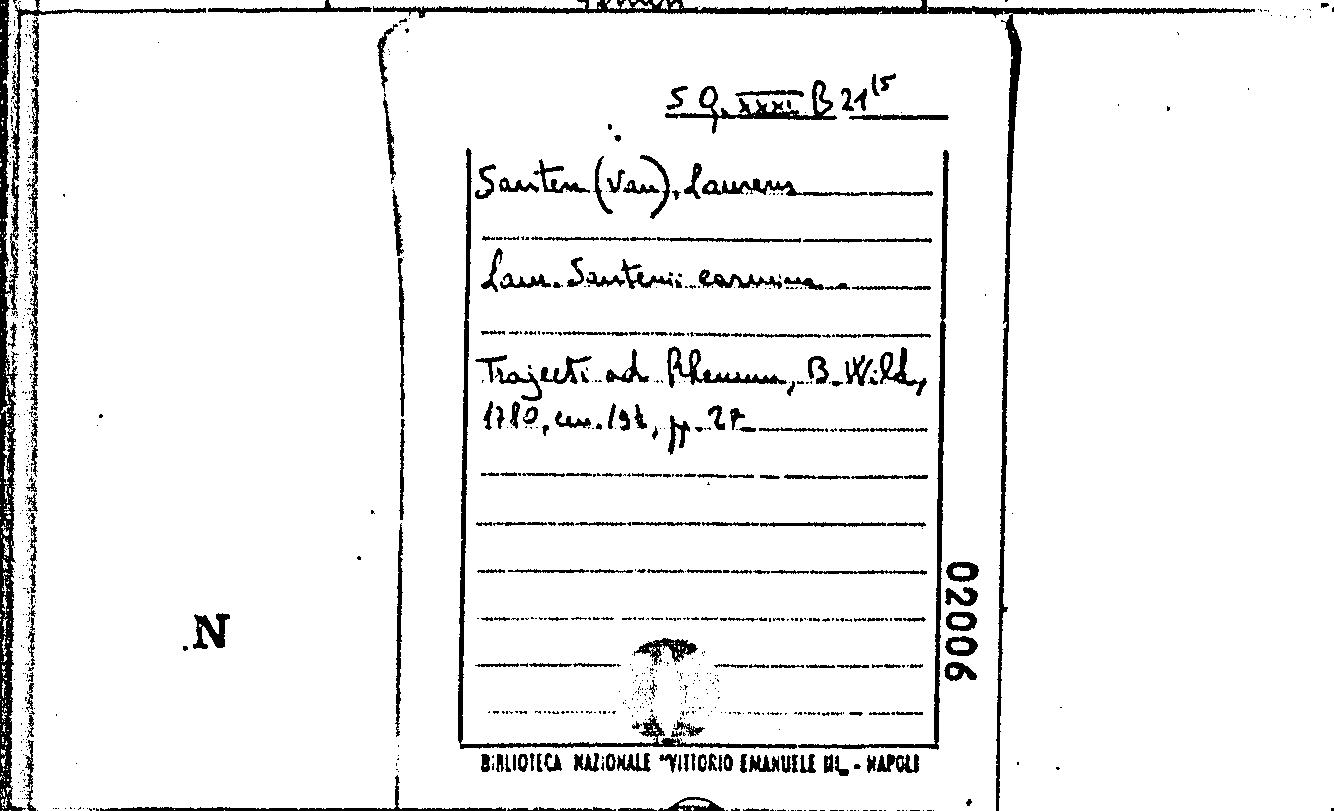 S Q. XXXI B 21 15
Santen (Van), Laurens
Laur. Santenii carmina
Trajecti ad Rhenum, B. Wild,
1780, cm. 19½, pp. 27
02006
N
BIBLIOTECA NAZIONALE "VITTORIO EMANUELE III_ - NAPOLI